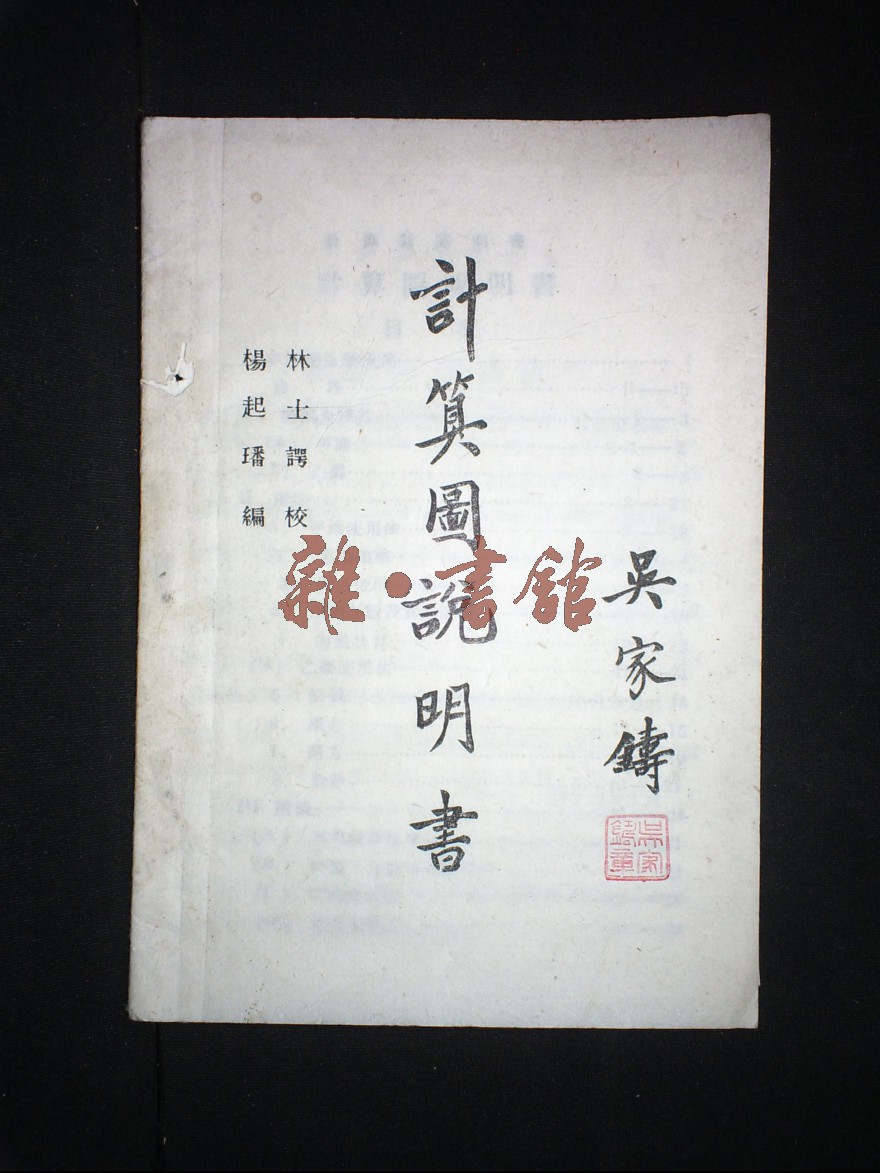 吳家鑄
吳家鑄章
計算圖說明書
林士諤校
楊起璠編
雜·書館